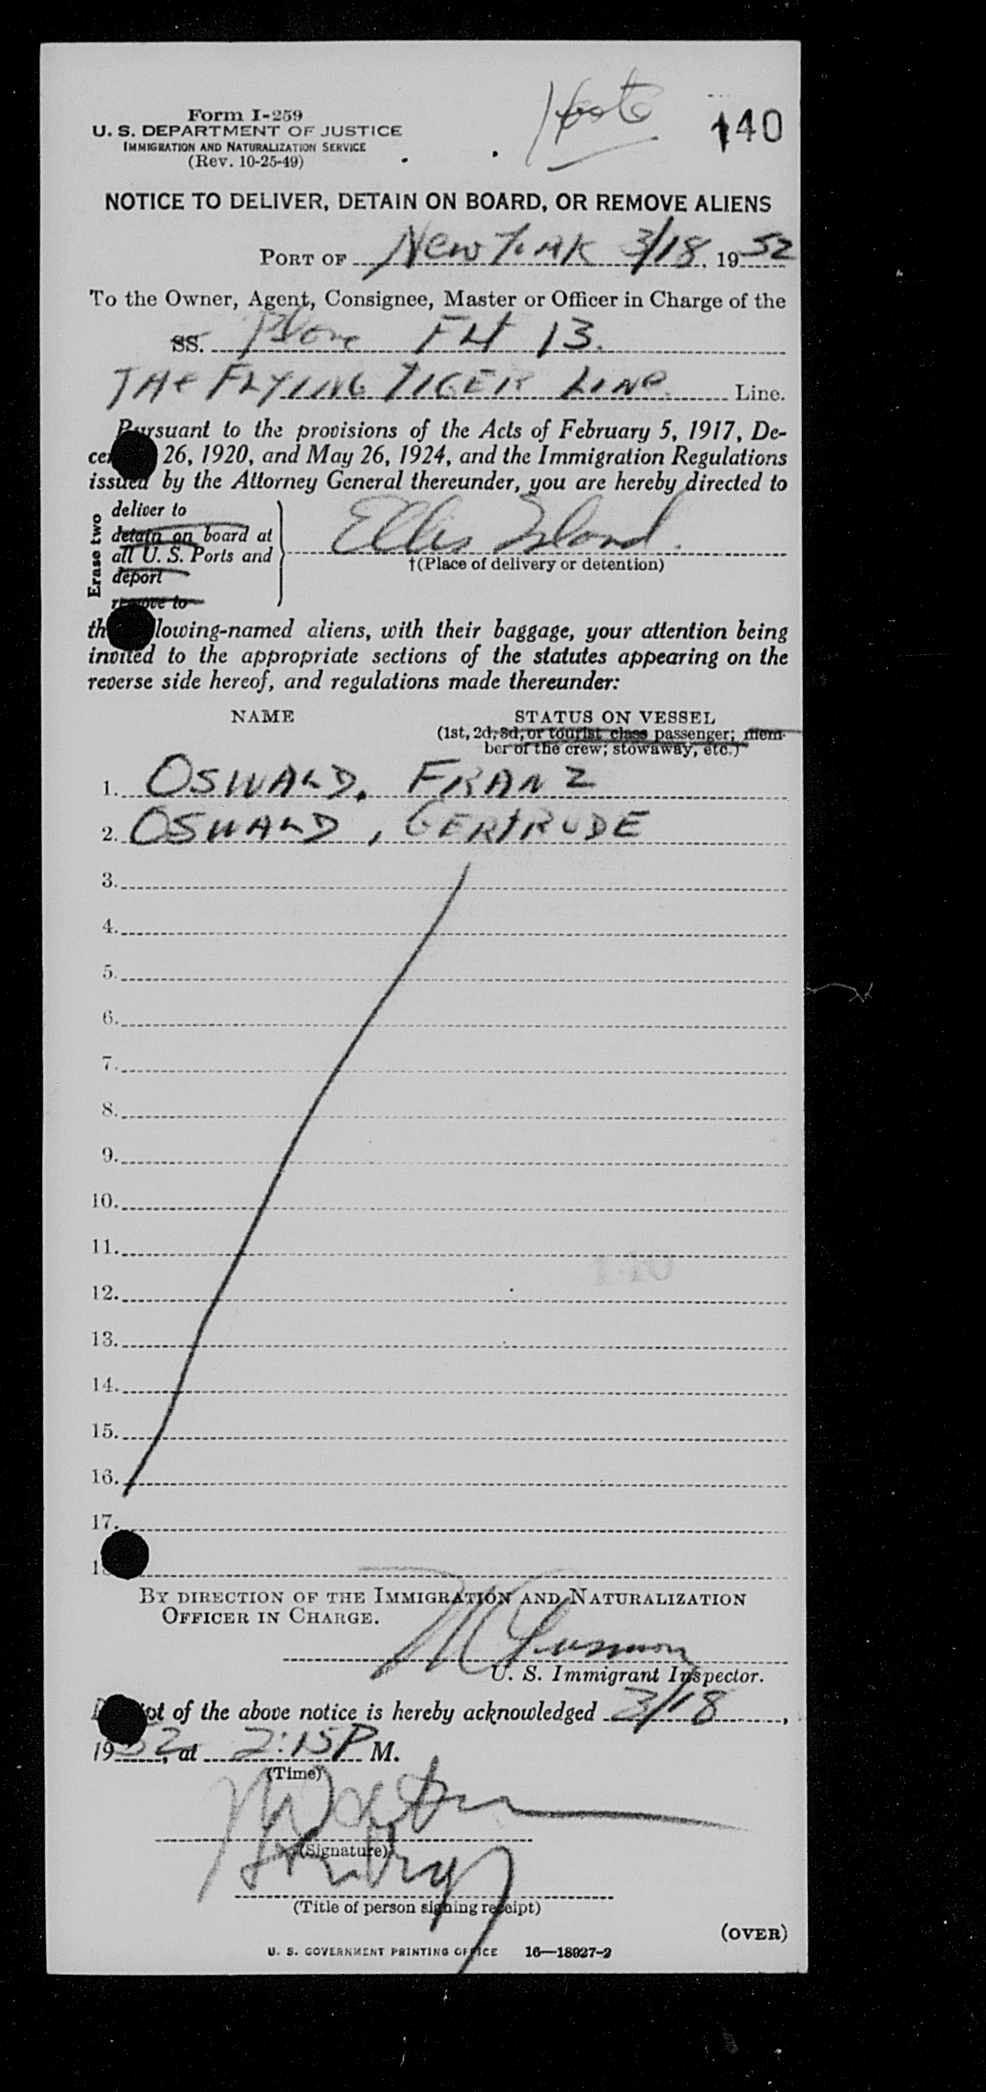 Form I-259
U. S. DEPARTMENT OF JUSTICE
IMMIGRATION AND NATURALIZATION SERVICE
(Rev. 10-25-49)
140
NOTICE TO DELIVER, DETAIN ON BOARD, OR REMOVE ALIENS
PORT OF New York 3/18, 1952
To the Owner, Agent, Consignee, Master or Officer in Charge of the
SS. Plane Flt 13.
The FLYING TIGER LINE Line.
Pursuant to the provisions of the Acts of February 5, 1917, De-
26, 1920, and May 26, 1924, and the Immigration Regulations
issued by the Attorney General thereunder, you are hereby directed to
Erase two
deliver to
detain on board at
all U. S. Ports and
deport
remove to
Ellis Island.
†(Place of delivery or detention)
lowing-named aliens, with their baggage, your attention being
invited to the appropriate sections of the statutes appearing on the
reverse side hereof, and regulations made thereunder:
NAME STATUS ON VESSEL
(1st, 2d, 3d, or tourist class passenger; mem-
ber of the crew; stowaway, etc.)
1. OSWALD, FRANZ
2. OSWALD, GERTRUDE
3.
4.
5.
6.
7.
8.
9.
10.
11.
12.
13.
14.
15.
16.
17.
BY DIRECTION OF THE IMMIGRATION AND NATURALIZATION
OFFICER IN CHARGE.
U. S. Immigrant Inspector.
of the above notice is hereby acknowledged 3/18,
1952, at 2:15P M.
(Time)
(Signature)
(Title of person signing receipt)
(OVER)
U. S. GOVERNMENT PRINTING OFFICE 16—18927-2